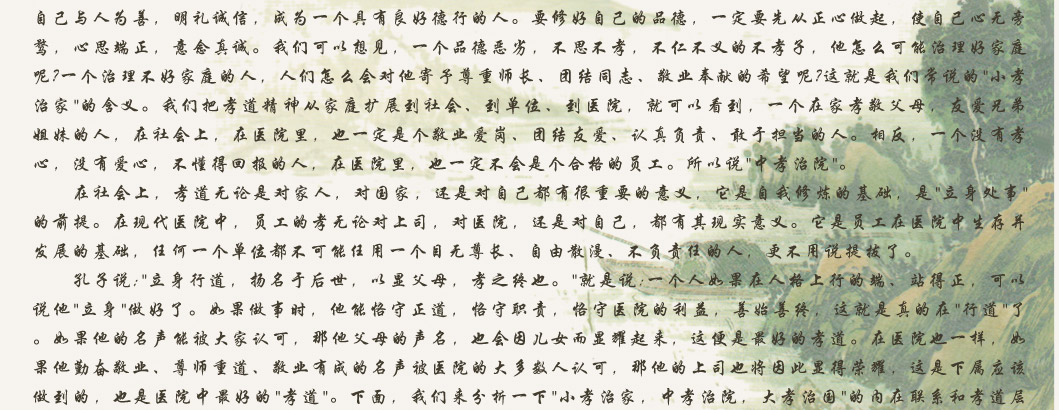 自己与人为善，明礼诚信，成为一个具有良好德行的人。要修好自己的品德，一定要先从正心做起，使自己心无旁
骛，心思端正，意念真诚。我们可以想见，一个品德恶劣，不思不孝，不仁不义的不孝子，他怎么可能治理好家庭
呢?一个治理不好家庭的人，人们怎么会对他寄予尊重师长、团结同志、敬业奉献的希望呢?这就是我们常说的"小孝
治家"的含义。我们把孝道精神从家庭扩展到社会、到单位、到医院，就可以看到，一个在家孝敬父母，友爱兄弟
姐妹的人，在社会上，在医院里，也一定是个敬业爱岗、团结友爱、认真负责、敢于担当的人。相反，一个没有孝
心，没有爱心，不懂得回报的人，在医院里，也一定不会是个合格的员工。所以说"中孝治院"。
在社会上，孝道无论是对家人，对国家，还是对自己都有很重要的意义，它是自我修炼的基础，是"立身处事"
的前提。在现代医院中，员工的孝无论对上司，对医院，还是对自己，都有其现实意义。它是员工在医院中生存并
发展的基础，任何一个单位都不可能任用一个目无尊长、自由散漫、不负责任的人，更不用说提拔了。
孔子说:"立身行道，扬名于后世，以显父母，孝之终也。"就是说:一个人如果在人格上行的端、站得正，可以
说他"立身"做好了。如果做事时，他能恪守正道，恪守职责，恪守医院的利益，善始善终，这就是真的在"行道"了
。如果他的名声能被大家认可，那他父母的声名，也会因儿女而显耀起来，这便是最好的孝道。在医院也一样，如
果他勤奋敬业、尊师重道、敬业有成的名声被医院的大多数人认可，那他的上司也将因此显得荣耀，这是下属应该
做到的，也是医院中最好的"孝道"。下面，我们来分析一下"小孝治家，中孝治院，大孝治国"的内在联系和孝道层